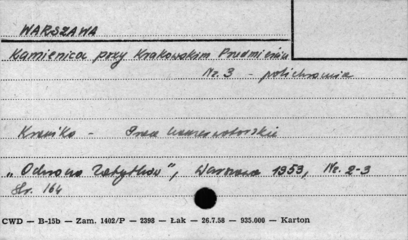 WARSZAWA
Kamienica przy Krakowskim Przedmieściu
Nr. 3 - polichromia
Kronika - Prace konserwatorskie
„Ochrona Zabytków", Warszawa 1953, Nr. 2-3
Str. 164
CWD — B-15b — Zam. 1402/P — 2398 — Łak — 26.7.58 — 935.000 — Karton